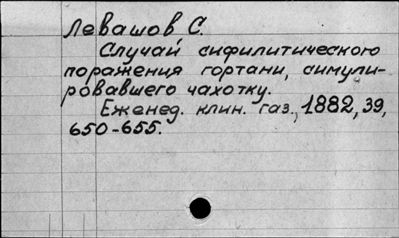 Левашов С.
Случай сифилитического
поражения гортани, симули-
ровавшего чахотку.
Еженед. клин. газ., 1882, 39,
650-655.